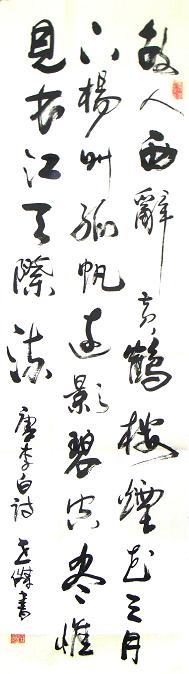 故人西辭黃鶴樓煙花三月
下楊州孤帆遠影碧空盡惟
見長江天際流
唐李白詩 書